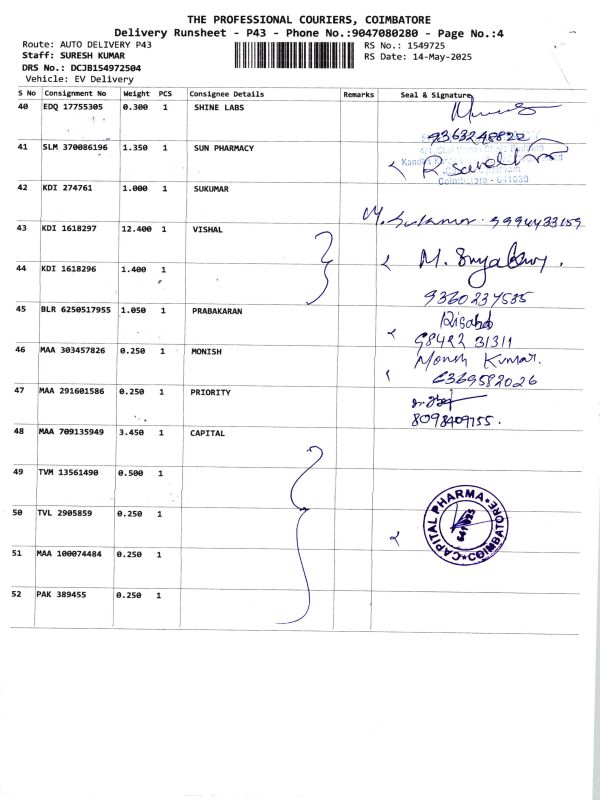 THE PROFESSIONAL COURIERS, COIMBATORE
Delivery Runsheet - P43 - Phone No.:9047080280 - Page No.:4
Route: AUTO DELIVERY P43
RS No.: 1549725
Staff: SURESH KUMAR
RS Date: 14-May-2025
DRS No.: DCJB154972504
Vehicle: EV Delivery
S No Consignment No Weight PCS Consignee Details Remarks Seal & Signature
40 EDQ 17755305 0.300 1 SHINE LABS
9363248822
41 SLM 370086196 1.350 1 SUN PHARMACY
Coimbatore - 641030
42 KDI 274761 1.000 1 SUKUMAR
9994433159
43 KDI 1618297 12.400 1 VISHAL
44 KDI 1618296 1.400 1
9360237535
45 BLR 6250517955 1.050 1 PRABAKARAN
98422 31311
46 MAA 303457826 0.250 1 MONISH
Monish Kumar.
6369582026
47 MAA 291601586 0.250 1 PRIORITY
8098409755.
48 MAA 709135949 3.450 1 CAPITAL
49 TVM 13561490 0.500 1
50 TVL 2905859 0.250 1
CAPITAL PHARMA
641025
COIMBATORE
51 MAA 100074484 0.250 1
52 PAK 389455 0.250 1